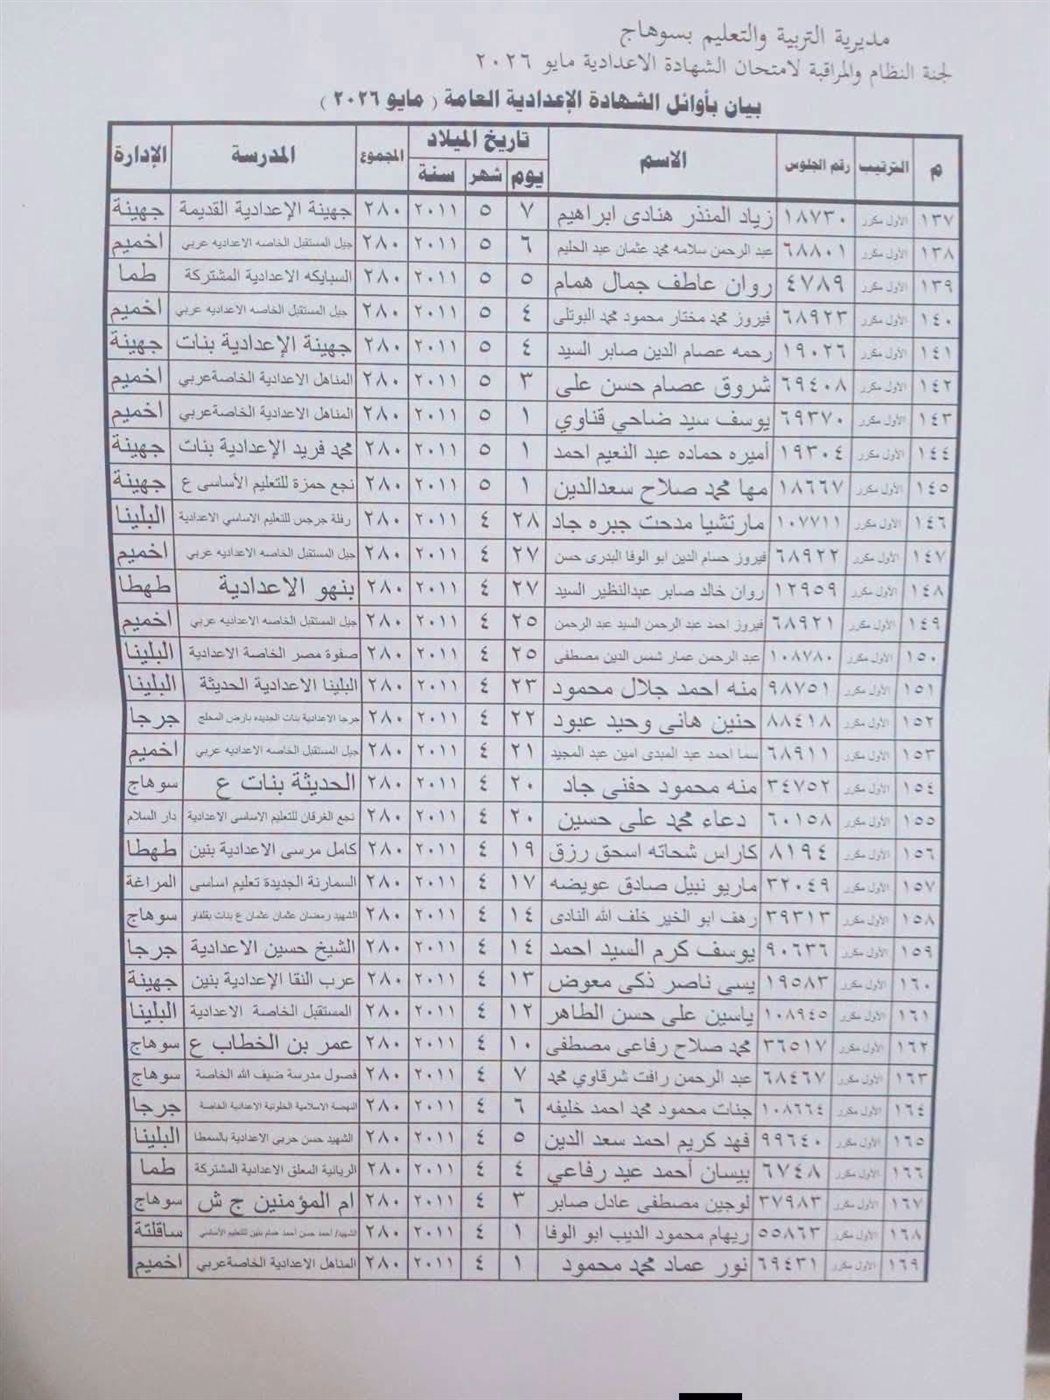 مديرية التربية والتعليم بسوهاج
لجنة النظام والمراقبة لامتحان الشهادة الاعدادية مايو ٢٠٢٦
بيان بأوائل الشهادة الإعدادية العامة ( مايو ٢٠٢٦ )
م الترتيب رقم الجلوس الاسم تاريخ الميلاد يوم شهر سنة المجموع المدرسة الإدارة
١٣٧ الأول مكرر ١٨٧٣٠ زياد المنذر هنادى ابراهيم ٧ ٥ ٢٠١١ ٢٨٠ جهينة الإعدادية القديمة جهينة
١٣٨ الأول مكرر ٦٨٨٠١ عبد الرحمن سلامه محمد عثمان عبد الحليم ٦ ٥ ٢٠١١ ٢٨٠ جيل المستقبل الخاصه الاعداديه عربي اخميم
١٣٩ الأول مكرر ٤٧٨٩ روان عاطف جمال همام ٥ ٥ ٢٠١١ ٢٨٠ السبايكه الاعدادية المشتركة طما
١٤٠ الأول مكرر ٦٨٩٢٣ فيروز محمد مختار محمود محمد البوتلى ٤ ٥ ٢٠١١ ٢٨٠ جيل المستقبل الخاصه الاعداديه عربي اخميم
١٤١ الأول مكرر ١٩٠٢٦ رحمه عصام الدين صابر السيد ٤ ٥ ٢٠١١ ٢٨٠ جهينة الإعدادية بنات جهينة
١٤٢ الأول مكرر ٦٩٤٠٨ شروق عصام حسن على ٣ ٥ ٢٠١١ ٢٨٠ المناهل الاعدادية الخاصةعربي اخميم
١٤٣ الأول مكرر ٦٩٣٧٠ يوسف سيد ضاحي قناوي ١ ٥ ٢٠١١ ٢٨٠ المناهل الاعدادية الخاصةعربي اخميم
١٤٤ الأول مكرر ١٩٣٠٤ أميره حماده عبد النعيم احمد ١ ٥ ٢٠١١ ٢٨٠ محمد فريد الإعدادية بنات جهينة
١٤٥ الأول مكرر ١٨٦٦٧ مها محمد صلاح سعدالدين ١ ٥ ٢٠١١ ٢٨٠ نجع حمزة للتعليم الأساسى ع جهينة
١٤٦ الأول مكرر ١٠٧٧١١ مارتشيا مدحت جبره جاد ٢٨ ٤ ٢٠١١ ٢٨٠ رفلة جرجس للتعليم الاساسي الاعدادية البلينا
١٤٧ الأول مكرر ٦٨٩٢٢ فيروز حسام الدين ابو الوفا البدرى حسن ٢٧ ٤ ٢٠١١ ٢٨٠ جيل المستقبل الخاصه الاعداديه عربي اخميم
١٤٨ الأول مكرر ١٢٩٥٩ روان خالد صابر عبدالنظير السيد ٢٧ ٤ ٢٠١١ ٢٨٠ بنهو الاعدادية طهطا
١٤٩ الأول مكرر ٦٨٩٢١ فيروز احمد عبد الرحمن السيد عبد الرحمن ٢٥ ٤ ٢٠١١ ٢٨٠ جيل المستقبل الخاصه الاعداديه عربي اخميم
١٥٠ الأول مكرر ١٠٨٧٨٠ عبد الرحمن عمار شمس الدين مصطفى ٢٥ ٤ ٢٠١١ ٢٨٠ صفوة مصر الخاصة الاعدادية البلينا
١٥١ الأول مكرر ٩٨٧٥١ منه احمد جلال محمود ٢٣ ٤ ٢٠١١ ٢٨٠ البلينا الاعدادية الحديثة البلينا
١٥٢ الأول مكرر ٨٨٤١٨ حنين هانى وحيد عبود ٢٢ ٤ ٢٠١١ ٢٨٠ جرجا الاعدادية بنات الجديده بارض المحلج جرجا
١٥٣ الأول مكرر ٦٨٩١١ سما احمد عبد المبدى امين عبد المجيد ٢١ ٤ ٢٠١١ ٢٨٠ جيل المستقبل الخاصه الاعداديه عربي اخميم
١٥٤ الأول مكرر ٣٤٧٥٢ منه محمود حفنى جاد ٢٠ ٤ ٢٠١١ ٢٨٠ الحديثة بنات ع سوهاج
١٥٥ الأول مكرر ٦٠١٥٨ دعاء محمد على حسين ٢٠ ٤ ٢٠١١ ٢٨٠ نجع الغرقان للتعليم الاساسى الاعدادية دار السلام
١٥٦ الأول مكرر ٨١٩٤ كاراس شحاته اسحق رزق ١٩ ٤ ٢٠١١ ٢٨٠ كامل مرسى الاعدادية بنين طهطا
١٥٧ الأول مكرر ٣٢٠٤٩ ماريو نبيل صادق عويضه ١٧ ٤ ٢٠١١ ٢٨٠ السمارنة الجديدة تعليم اساسى المراغة
١٥٨ الأول مكرر ٣٩٣١٣ رهف ابو الخير خلف الله النادى ١٤ ٤ ٢٠١١ ٢٨٠ الشهيد رمضان عثمان عثمان ع بنات بقلفاو سوهاج
١٥٩ الأول مكرر ٩٠٦٣٦ يوسف كرم السيد احمد ١٤ ٤ ٢٠١١ ٢٨٠ الشيخ حسين الاعدادية جرجا
١٦٠ الأول مكرر ١٩٥٨٣ يسى ناصر ذكى معوض ١٣ ٤ ٢٠١١ ٢٨٠ عرب النقا الإعدادية بنين جهينة
١٦١ الأول مكرر ١٠٨٩٤٥ ياسين على حسن الطاهر ١٢ ٤ ٢٠١١ ٢٨٠ المستقبل الخاصة الاعدادية البلينا
١٦٢ الأول مكرر ٣٦٥١٧ محمد صلاح رفاعى مصطفى ١٠ ٤ ٢٠١١ ٢٨٠ عمر بن الخطاب ع سوهاج
١٦٣ الأول مكرر ٦٨٤٦٧ عبد الرحمن رافت شرقاوي محمد ٧ ٤ ٢٠١١ ٢٨٠ فصول مدرسة ضيف الله الخاصة سوهاج
١٦٤ الأول مكرر ١٠٨٦٦٤ جنات محمود محمد احمد خليفه ٦ ٤ ٢٠١١ ٢٨٠ النهضة الاسلامية الخلوتية الاعدادية الخاصة جرجا
١٦٥ الأول مكرر ٩٩٦٤٠ فهد كريم احمد سعد الدين ٥ ٤ ٢٠١١ ٢٨٠ الشهيد حسن حربى الاعدادية بالسمطا البلينا
١٦٦ الأول مكرر ٦٧٤٨ بيسان أحمد عيد رفاعي ٤ ٤ ٢٠١١ ٢٨٠ الريانية المعلق الاعدادية المشتركة طما
١٦٧ الأول مكرر ٣٧٩٨٣ لوجين مصطفى عادل صابر ٣ ٤ ٢٠١١ ٢٨٠ ام المؤمنين ج ش سوهاج
١٦٨ الأول مكرر ٥٥٨٦٣ ريهام محمود الديب ابو الوفا ١ ٤ ٢٠١١ ٢٨٠ الشهيد/ أحمد حسن أحمد همام بنين للتعليم الأساسي ساقلتة
١٦٩ الأول مكرر ٦٩٤٣١ نور عماد محمد محمود ١ ٤ ٢٠١١ ٢٨٠ المناهل الاعدادية الخاصةعربي اخميم